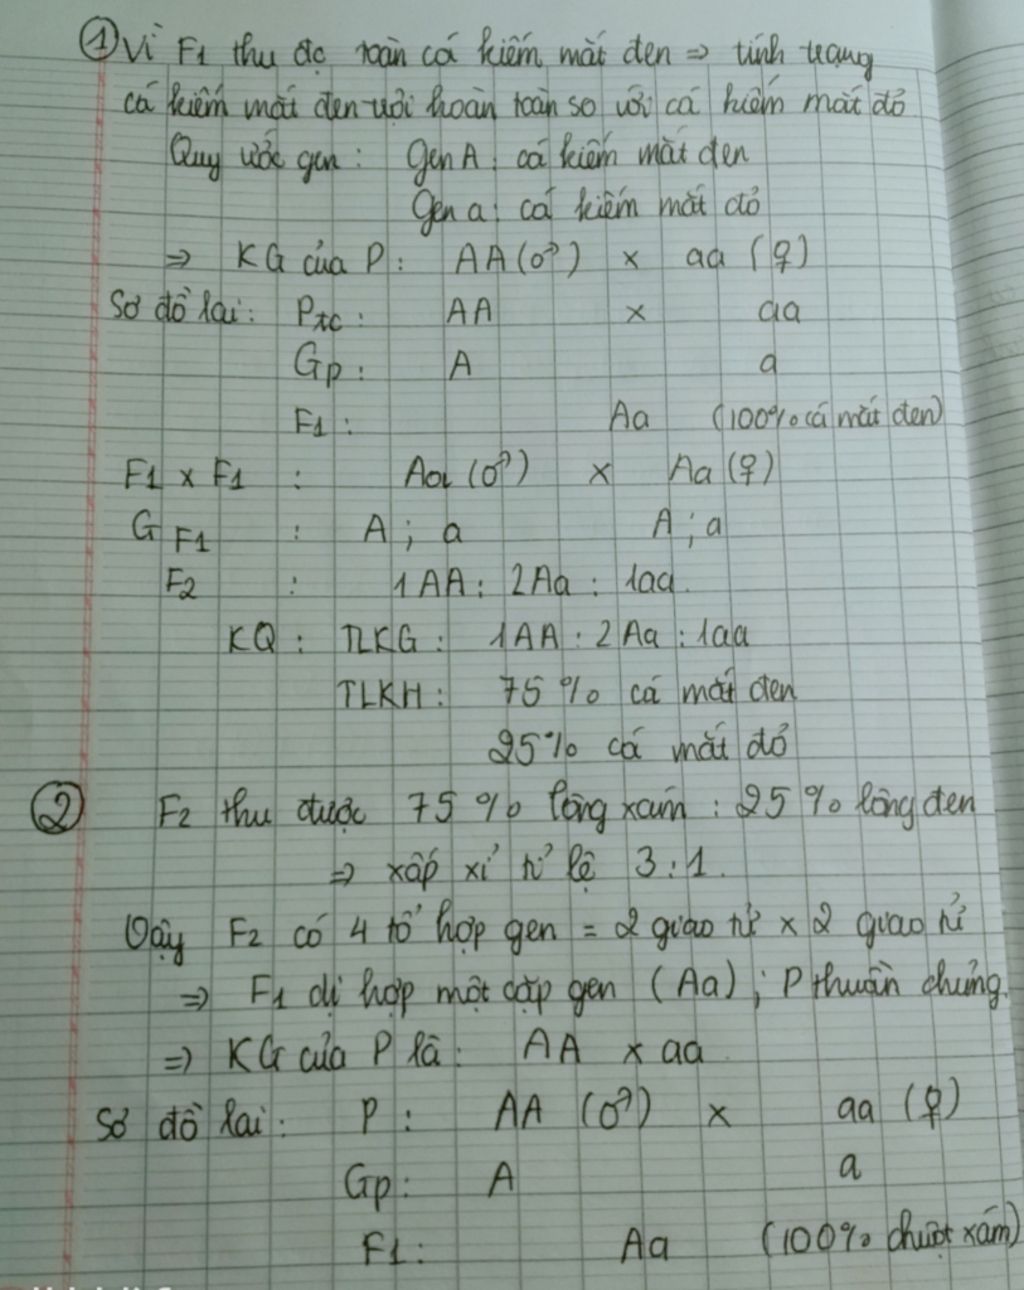 ① Vì F1 thu đc toàn cá kiếm mắt đen => tính trạng
cá kiếm mắt đen trội hoàn toàn so với cá kiếm mắt đỏ
Quy ước gen: Gen A: cá kiếm mắt đen
Gen a: cá kiếm mắt đỏ
=> KG của P: AA (♂) x aa (♀)
Sơ đồ lai: Ptc: AA x aa
Gp: A a
F1: Aa (100% cá mắt đen)
F1 x F1 : Aa (♂) x Aa (♀)
G F1 : A ; a A ; a
F2 : 1AA : 2Aa : 1aa.
KQ: TLKG: 1AA : 2Aa : 1aa
TLKH: 75% cá mắt đen
25% cá mắt đỏ
② F2 thu được 75% lông xám : 25% lông đen
=> xấp xỉ tỉ lệ 3:1.
Vậy F2 có 4 tổ hợp gen = 2 giao tử x 2 giao tử
=> F1 dị hợp một cặp gen (Aa); P thuần chủng.
=> KG của P là: AA x aa.
Sơ đồ lai: P: AA (♂) x aa (♀)
Gp: A a
F1: Aa (100% chuột xám)